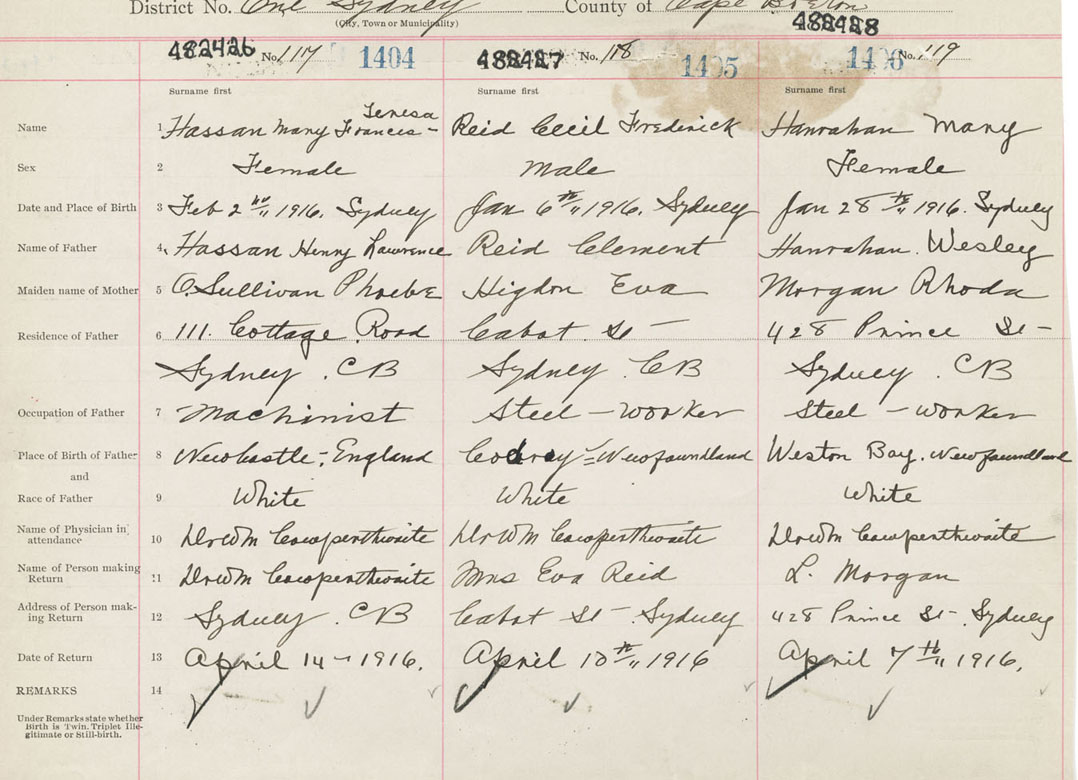 District No. One Sydney County of Cape Breton
(City, Town or Municipality)
482426 No. 117 1404 482427 No. 118 1405 482428 1406 No. 119
Surname first Surname first Surname first
Teresa
Name 1 Hassan Mary Frances - Reid Cecil Fredrick Hanrahan Mary
Sex 2 Female Male Female
Date and Place of Birth 3 Feb 2nd, 1916. Sydney Jan 6th, 1916. Sydney Jan 28th, 1916. Sydney
Name of Father 4 Hassan Henry Lawrence Reid Clement Hanrahan. Wesley
Maiden name of Mother 5 O.Sullivan Phoebe Higdon Eva Morgan Rhoda
Residence of Father 6 111. Cottage Road Cabot St - 428 Prince St -
Sydney. CB Sydney. CB Sydney. CB
Occupation of Father 7 Machinist Steel - worker Steel - worker
Place of Birth of Father 8 Newcastle - England Codroy - Newfoundland Weston Bay. Newfoundland
and
Race of Father 9 White White White
Name of Physician in attendance 10 Dr Wm Cowperthwaite Dr Wm Cowperthwaite Dr Wm Cowperthwaite
Name of Person making Return 11 Dr Wm Cowperthwaite Mrs Eva Reid L. Morgan
Address of Person making Return 12 Sydney. CB Cabot St - Sydney 428 Prince St - Sydney
Date of Return 13 April 14 - 1916. April 10th, 1916 April 7th, 1916.
REMARKS 14
Under Remarks state whether
Birth is Twin. Triplet Ille-
gitimate or Still-birth.